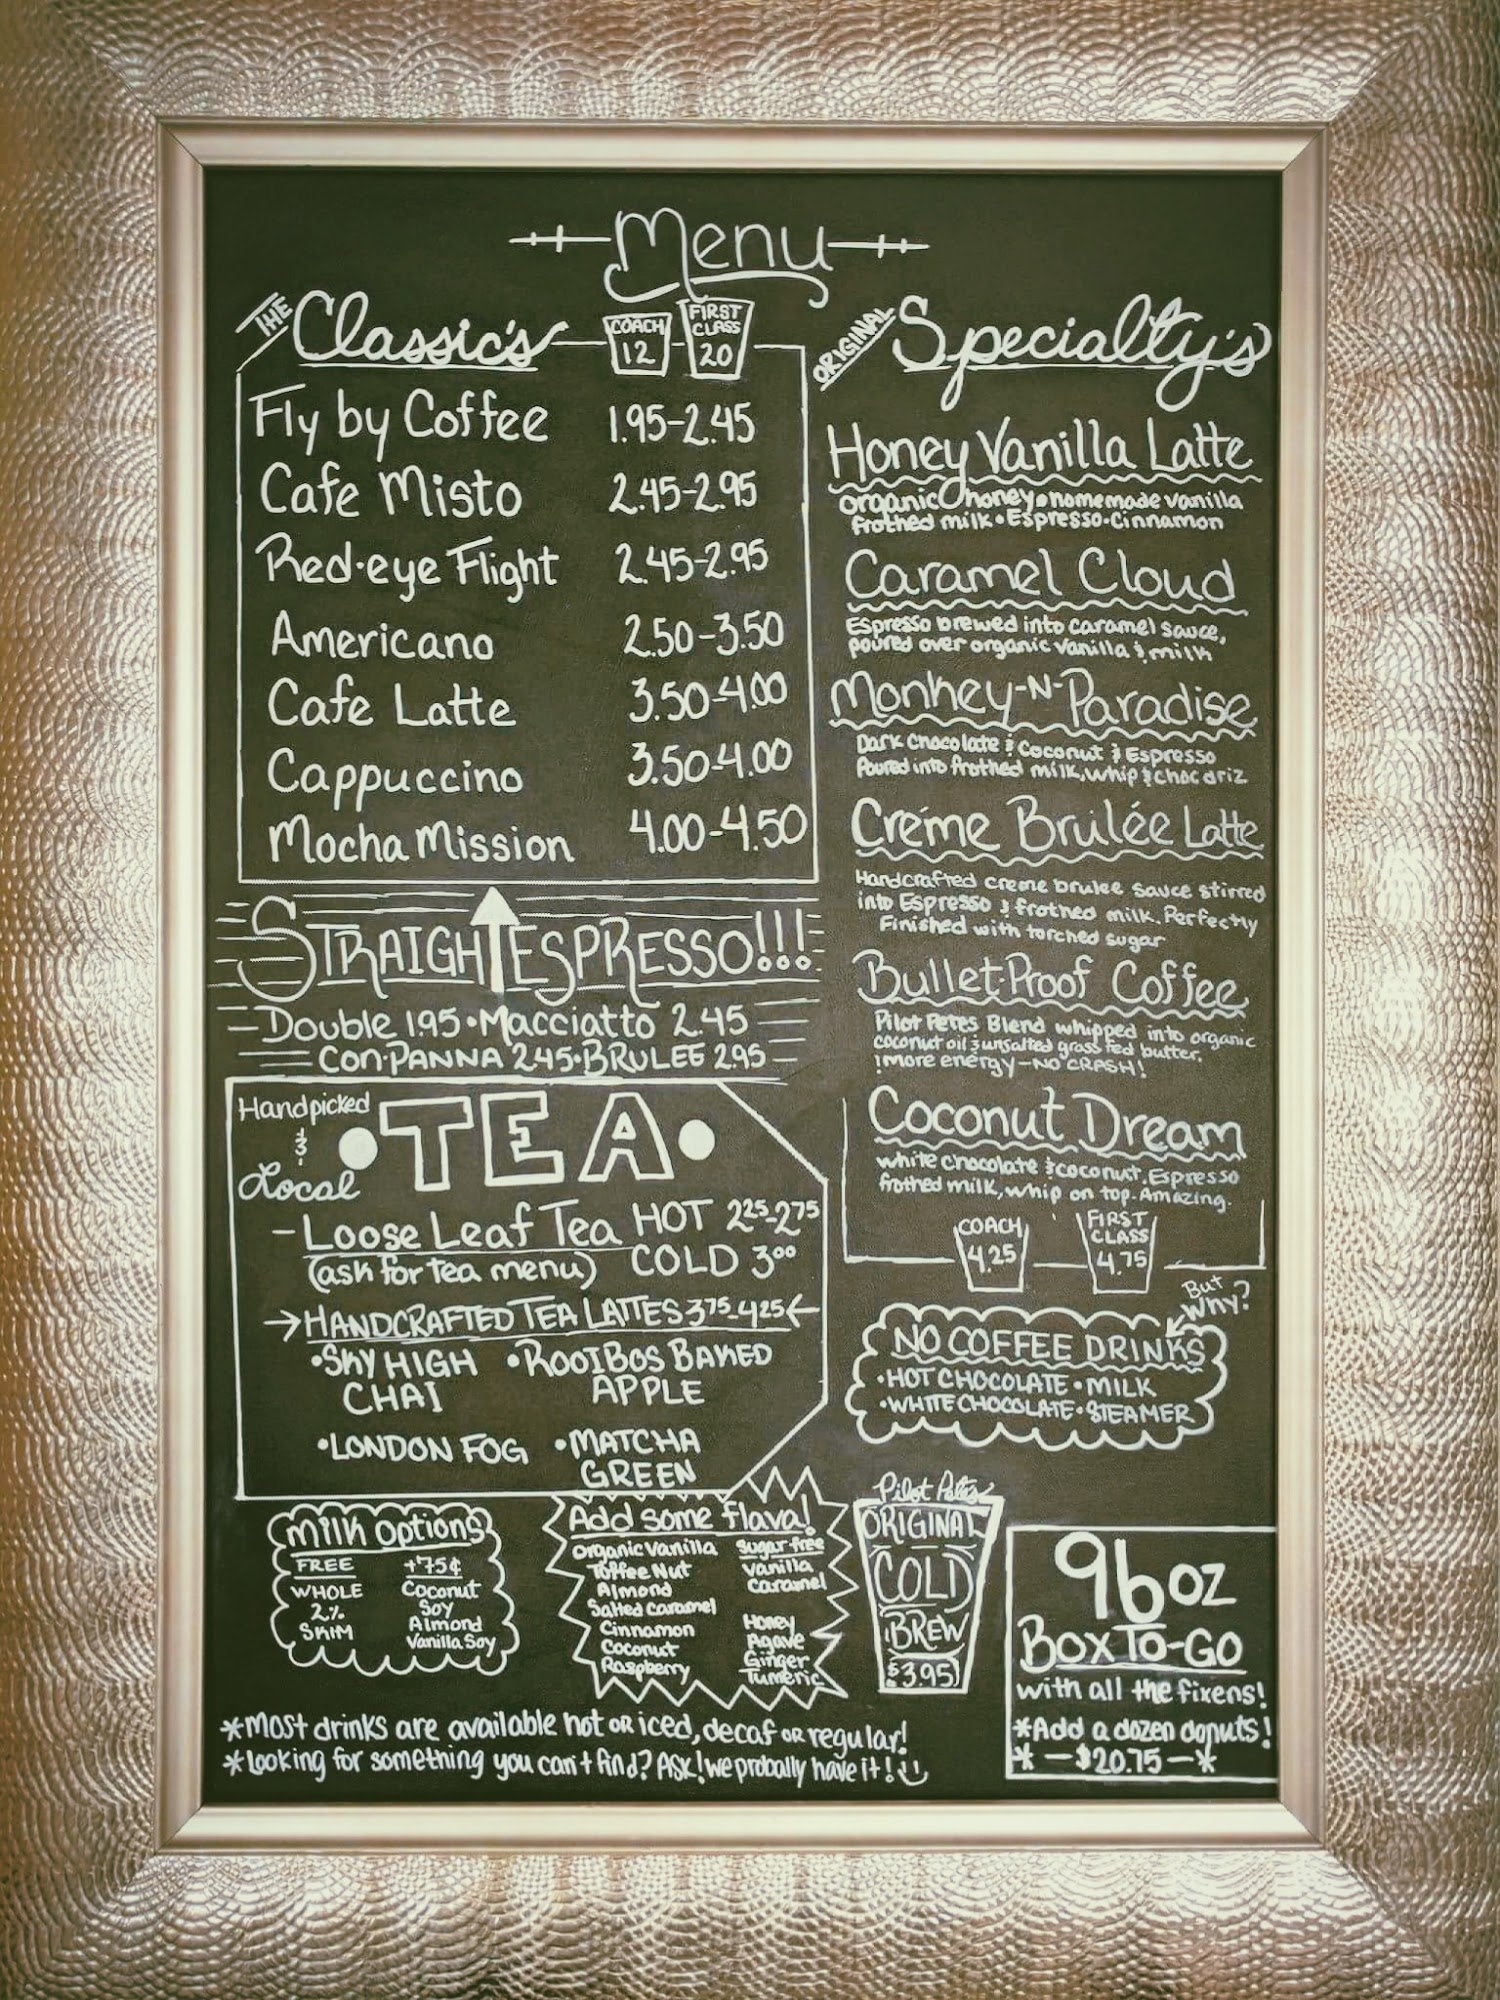 Menu
THE Classic's COACH 12 FIRST CLASS 20
Fly by Coffee 1.95-2.45
Cafe Misto 2.45-2.95
Red·eye Flight 2.45-2.95
Americano 2.50-3.50
Cafe Latte 3.50-4.00
Cappuccino 3.50-4.00
Mocha Mission 4.00-4.50
STRAIGHT ESPRESSO!!!
Double 1.95·Macciatto 2.45
CON·PANNA 2.45·BRULEE 2.95
Handpicked & Local
TEA
- Loose Leaf Tea HOT 2.25-2.75
(ask for tea menu) COLD 3.00
→HANDCRAFTED TEA LATTES 3.75-4.25←
·SKY HIGH CHAI
·ROOIBOS BAKED APPLE
·LONDON FOG
·MATCHA GREEN
Milk Options
FREE +75¢
WHOLE Coconut
2% Soy
SKIM Almond
Vanilla Soy
Add some flava!
Organic Vanilla sugar free
Toffee Nut vanilla
Almond caramel
Salted Caramel
Cinnamon Honey
Coconut Agave
Raspberry Ginger
Tumeric
*Most drinks are available hot OR iced, decaf OR regular!
*Looking for something you can't find? ASK! we probally have it!
ORIGINAL Specialty's
Honey Vanilla Latte
organic honey·homemade vanilla
frothed milk·Espresso·Cinnamon
Caramel Cloud
Espresso brewed into caramel sauce,
poured over organic vanilla & milk
Monkey-N-Paradise
Dark Chocolate & Coconut & Espresso
Poured into frothed milk, whip & choc driz
Créme Brulée Latte
Handcrafted creme brulee sauce stirred
into Espresso & frothed milk. Perfectly
Finished with torched sugar
Bullet·Proof Coffee
Pilot Petes Blend whipped into organic
coconut oil & unsalted grass fed butter.
!more energy-NO CRASH!
Coconut Dream
white chocolate & coconut, Espresso
frothed milk, whip on top. Amazing.
COACH 4.25 FIRST CLASS 4.75
But Why?
NO COFFEE DRINKS
·HOT CHOCOLATE·MILK
·WHITE CHOCOLATE·STEAMER
Pilot Petes
ORIGINAL
COLD
BREW
$3.95
96 oz
BOX TO-GO
with all the fixens!
*Add a dozen donuts!
* -$20.75-*